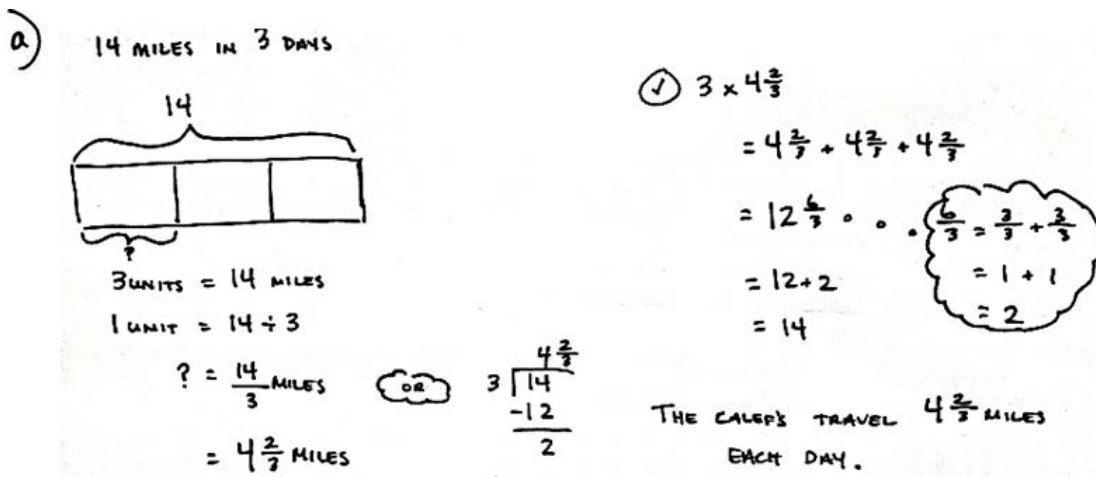 a)
14 MILES IN 3 DAYS
14
?
3 UNITS = 14 MILES
1 UNIT = 14 ÷ 3
? = 14/3 MILES
= 4 2/3 MILES
OR
4 2/3
3 14
-12
2
✓ 3 × 4 2/3
= 4 2/3 + 4 2/3 + 4 2/3
= 12 6/3
= 12 + 2
= 14
6/3 = 3/3 + 3/3
= 1 + 1
= 2
THE CALEF'S TRAVEL 4 2/3 MILES
EACH DAY.